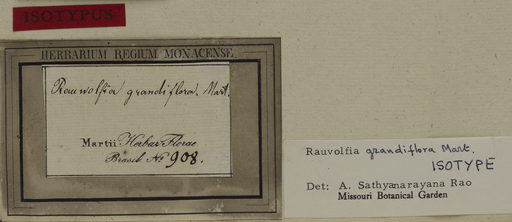 ISOTYPUS
HERBARIUM REGIUM MONACENSE
Rauwolfia grandiflora. Mart.
Martii Herbar. Florae
Brasil. No 908.
Rauvolfia grandiflora Mart.
ISOTYPE
Det: A. Sathyanarayana Rao
Missouri Botanical Garden